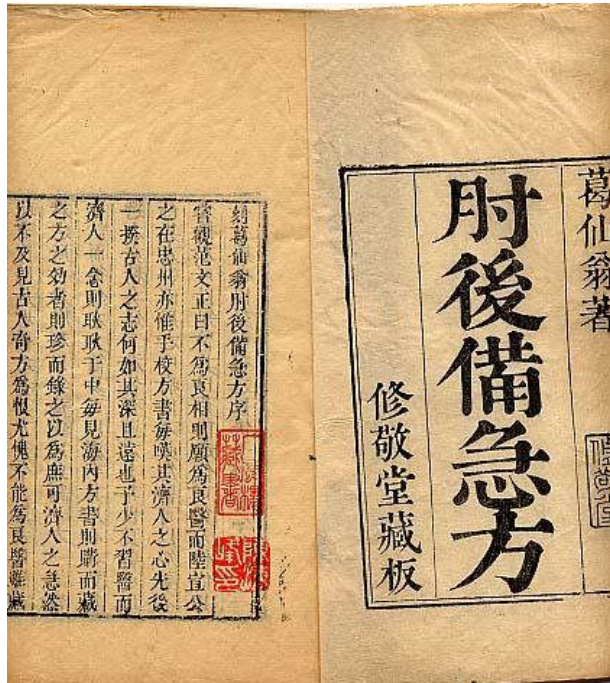 葛仙翁著
肘後備急方
修敬堂藏板
刻葛仙翁肘後備急方序
嘗觀范文正曰不爲良相則願爲良醫而陸宣公
之在忠州亦惟手校方書每嘆其濟人之心先後
一揆古人之志何如其深且遠也予少不習醫而
濟人一念則耿耿于中每見海內方書則購而藏
之方之効者則珍而錄之以爲庶可濟人之急然
以不及見古人奇方爲恨尤愧不能爲良醫雖藏
藏書